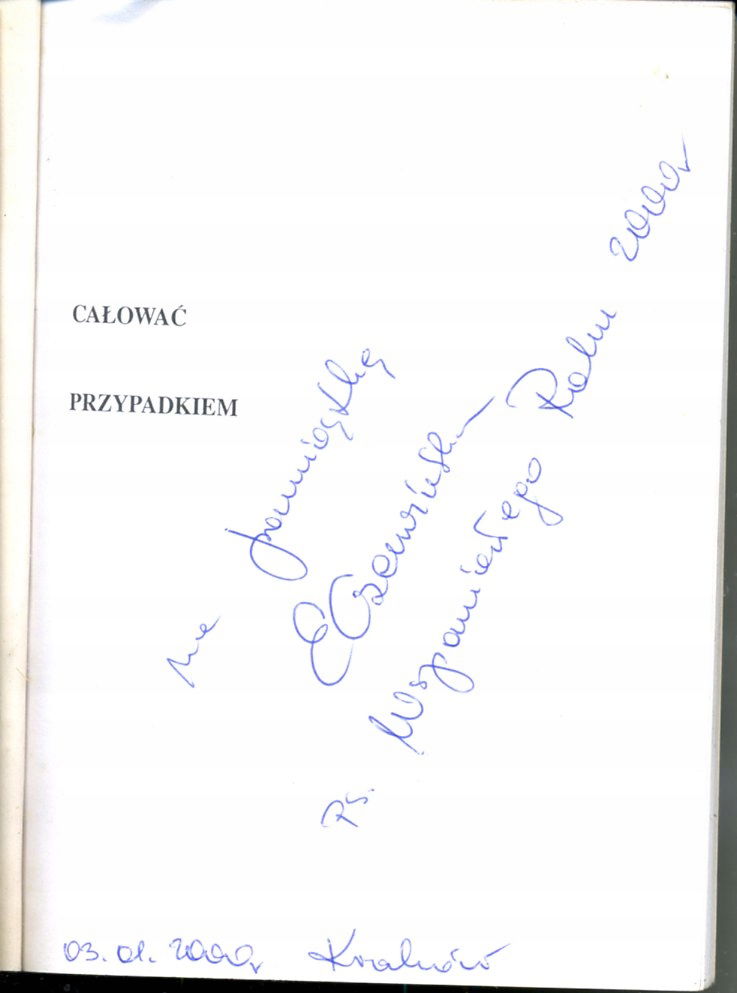 CAŁOWAĆ
PRZYPADKIEM
na pamiątkę
E Czerwińska
Ps. Wspaniałego Roku 2000r
03.01.2000r Kraków